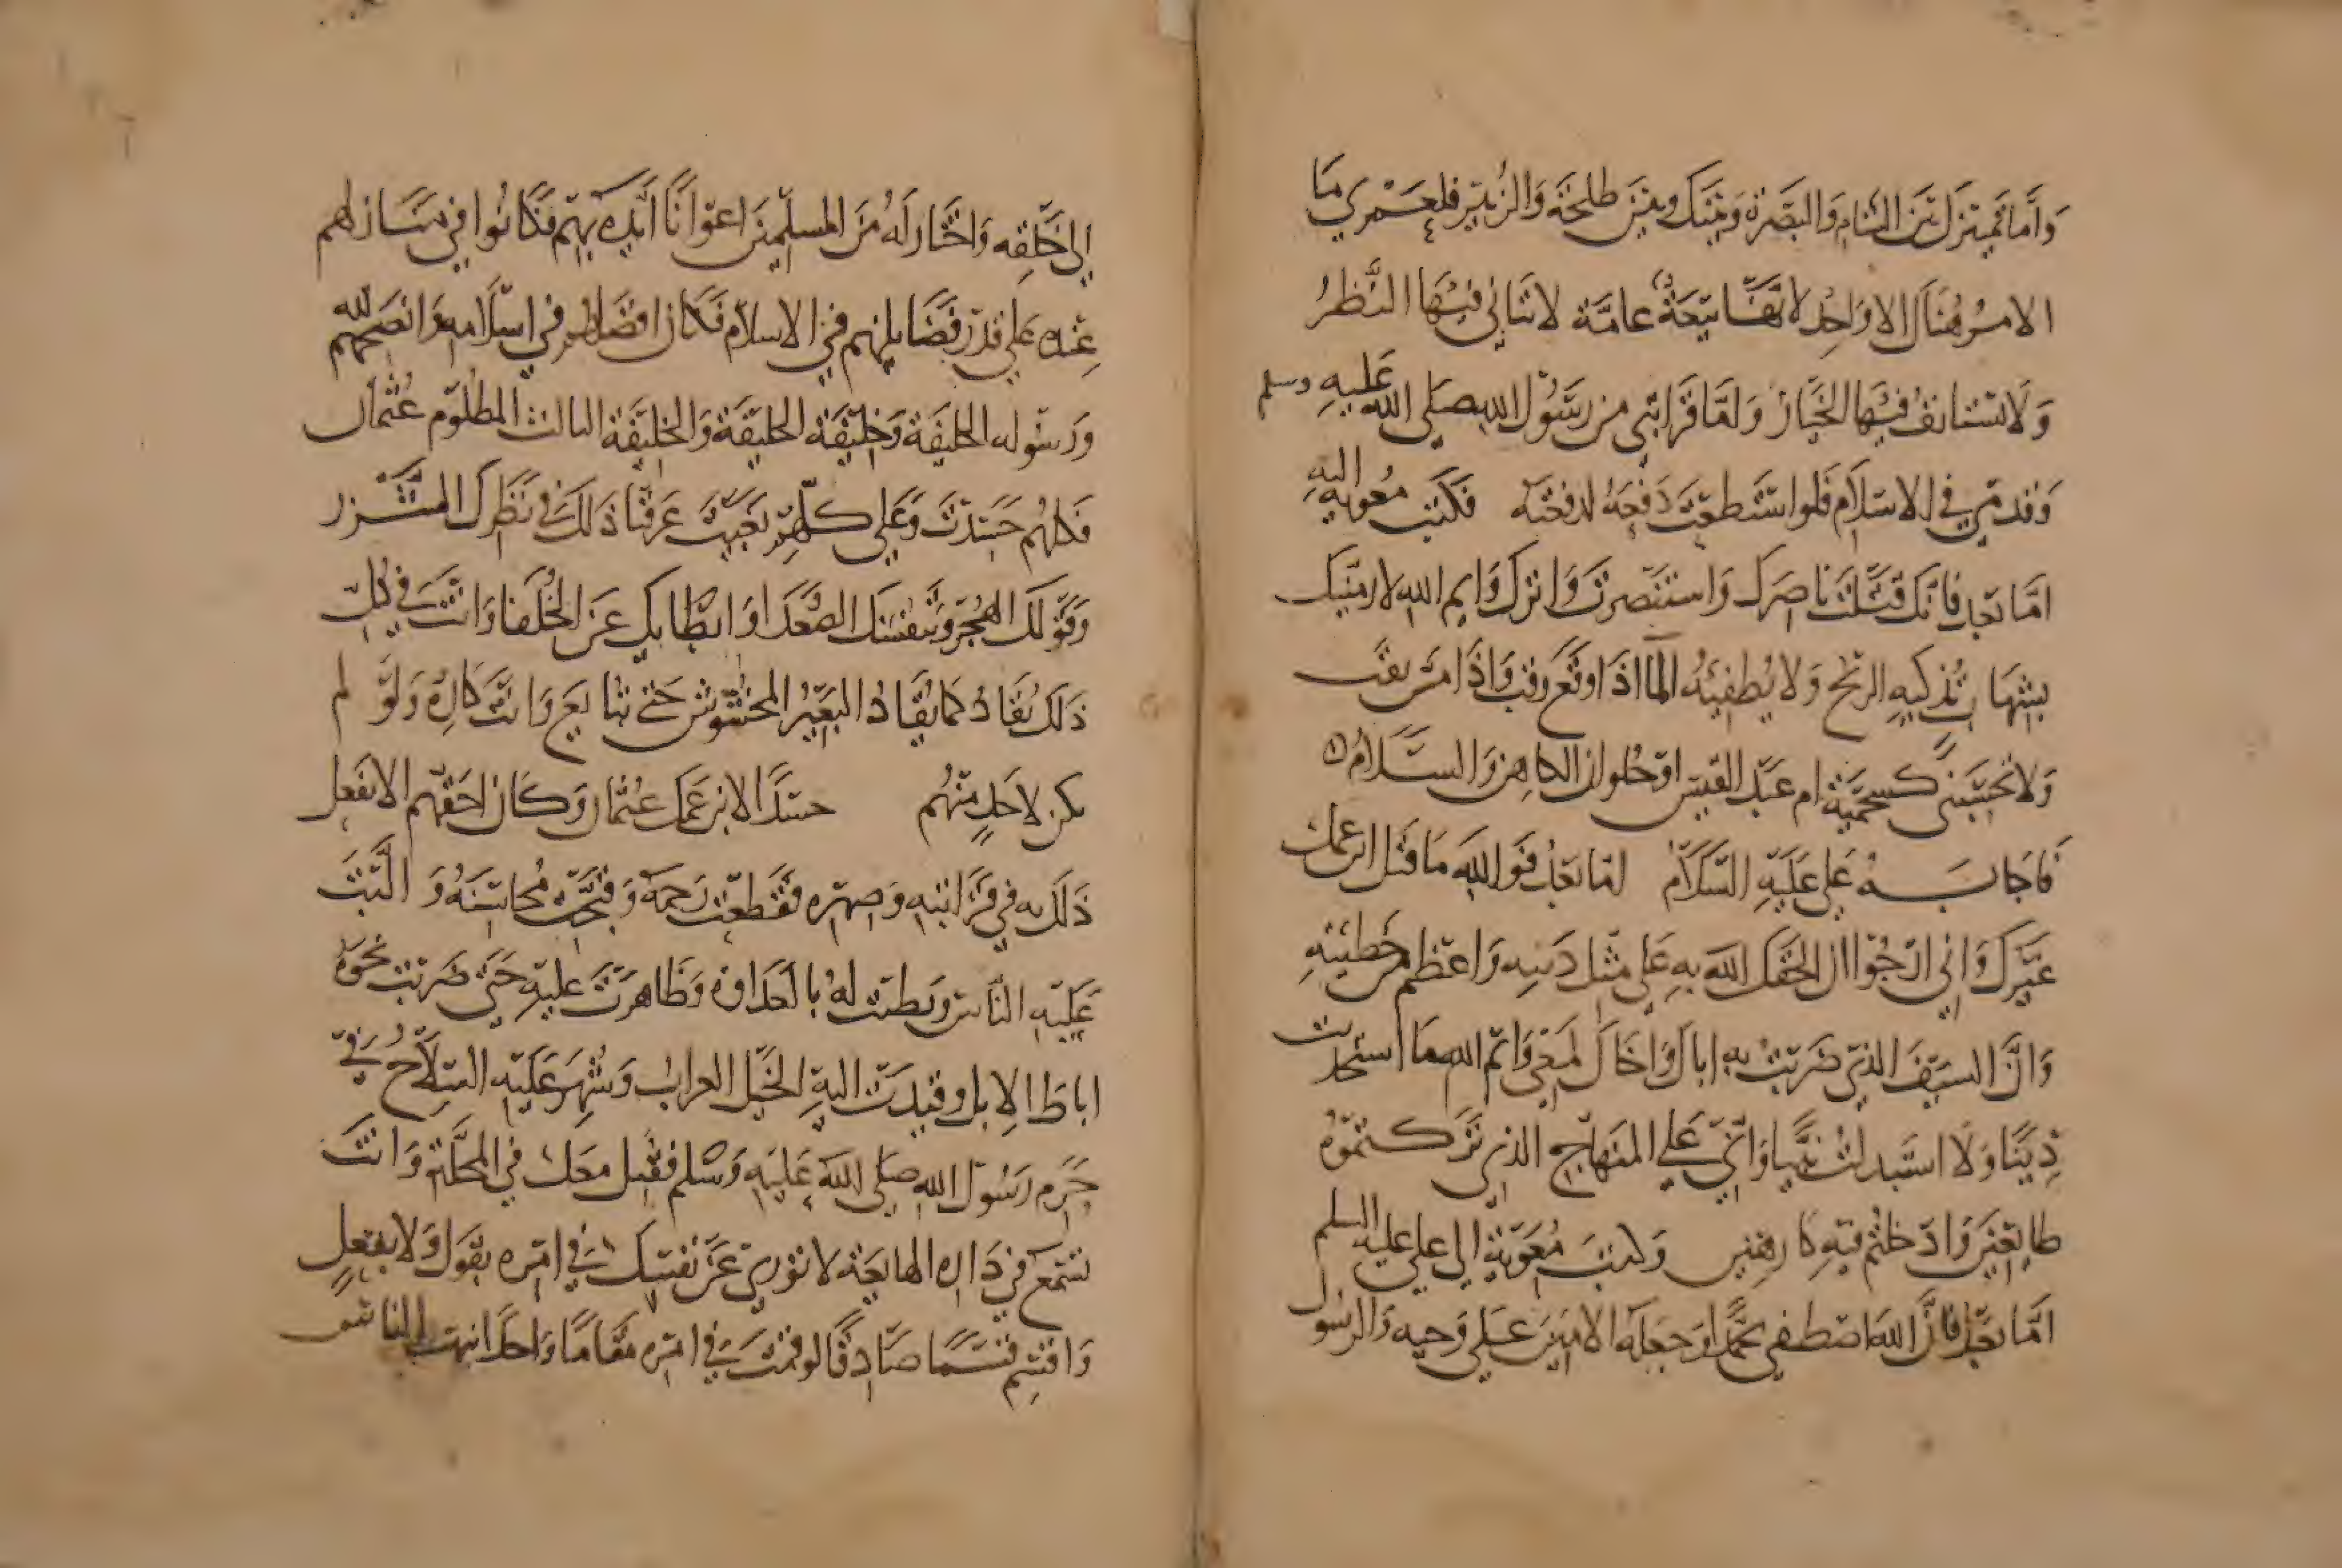 وَأَما تمييزك بين الشام والبصرة وبينك وبين طلحة والزبير فلعمري ما
الامر هناك الا واحد لانها بيعة عامة لا يثاني فيها النظر
ولا يستانف فيها الخيار ولما قرابتي من رسول الله صلى الله عليه وسلم
وقدمي في الاسلام فلو استطعت دفعه لدفعته فكتب معوية اليه
اما بعد فانك قتلت ناصرك واستنصرت واترك وايم الله لارمينك
بشهاب تذكيه الريح ولا يطفيه الما اذا وقع وقب واذا مس ثقب
ولا تحسبني كسحمة ام عبد القيس او حلوان الكاهن والسلام
فاجابه علي عليه السلام اما بعد فوالله ما قتل ابن عمك
غيرك واني ارجوا ان الحقك الله به على مثل دنبه واعظم من خطيئته
وان السيف الذي ضربت به اباك واخاك لمعي وايم الله ما استحدثت
دينا ولا استبدلت نبيا واني على المنهاج الذي تركتموه
طايعين وادخلتم فيه كارهين وكتب معوية الى علي عليه السلم
اما بعد فان الله اصطفى محمدا وجعله الامين على وحيه والرسول
الى خلقه واختار له من المسلمين اعوانا ايده بهم فكانوا في منازلهم
عنده على قدر فضايلهم في الاسلام فكان افضلهم في اسلامه وانصحهم لله
ورسوله الخليفة وخليفة الخليفة والخليفة الثالث المظلوم عثمان
فكلهم حسدت وعلى كلهم بغيت عرفنا ذلك في نظرك الشزر
وقولك الهجر وتنفسك الصعدا وابطايك عن الخلفا وانت في كل
ذلك تقاد كما يقاد البعير المخشوش حتى تبايع وانت كاره ولو لم
يكن لاحد منهم حسدا لابن عمك عثمان وكان احقهم الا تفعل
ذلك به في قرابته وصهره فقطعت رحمه وقبحت محاسنه والبت
عليه الناس وبطنت له بالعداوة وظاهرت عليه حتى ضربت نحوه
اباط الابل وقيدت اليه الخيل العراب وشهر عليه السلاح في
حرم رسول الله صلى الله عليه وسلم فقتل معك في المحلة وانت
تسمع في داره الهايعة لا تؤري عن نفسك في امره بقول ولا بفعل
واقسم قسما صادقا لو قمت في امره مقاما واحدا تنهى الناس